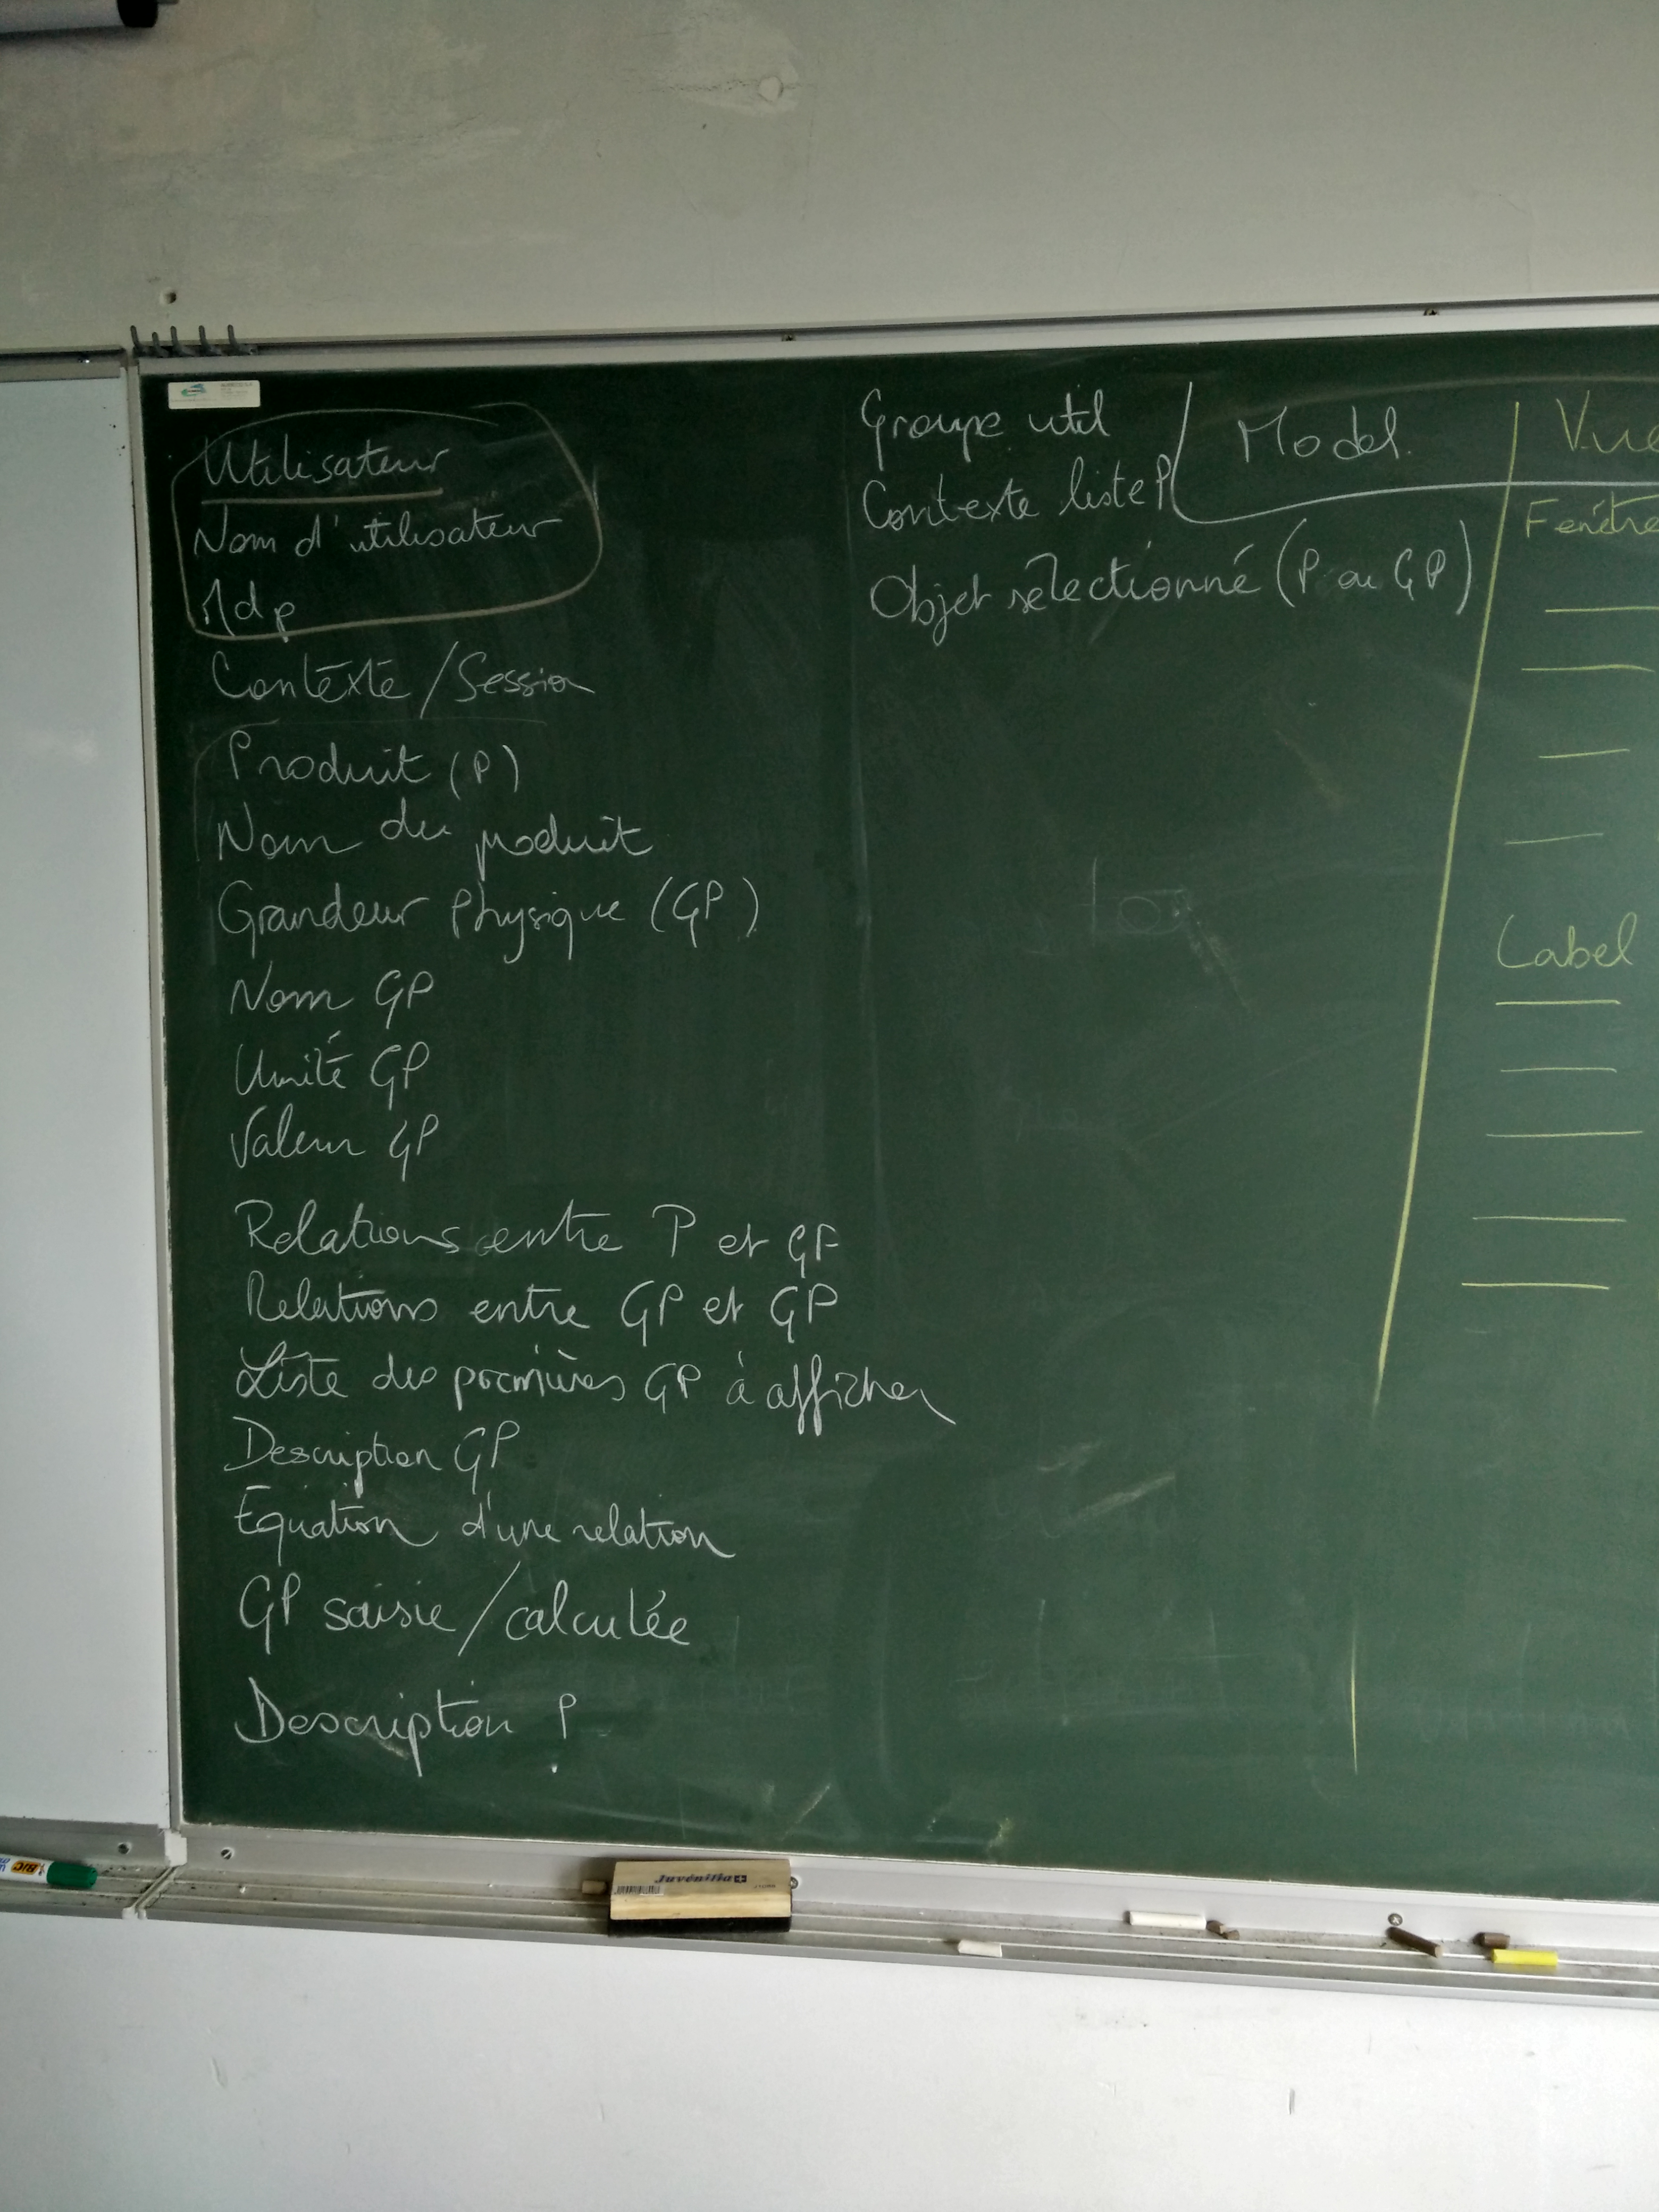 Utilisateur
Nom d'utilisateur
Mdp
Contexte / Session
Produit (P)
Nom du produit
Grandeur Physique (GP)
Nom GP
Unité GP
Valeur GP
Relations entre P et GP
Relations entre GP et GP
Liste des premières GP à afficher
Description GP
Equation d'une relation
GP saisie / calculée
Description P
Groupe util
Contexte liste P
Objet sélectionné (P ou GP)
Model
Vue
Fenêtre
Label
Juvénilia
BIC